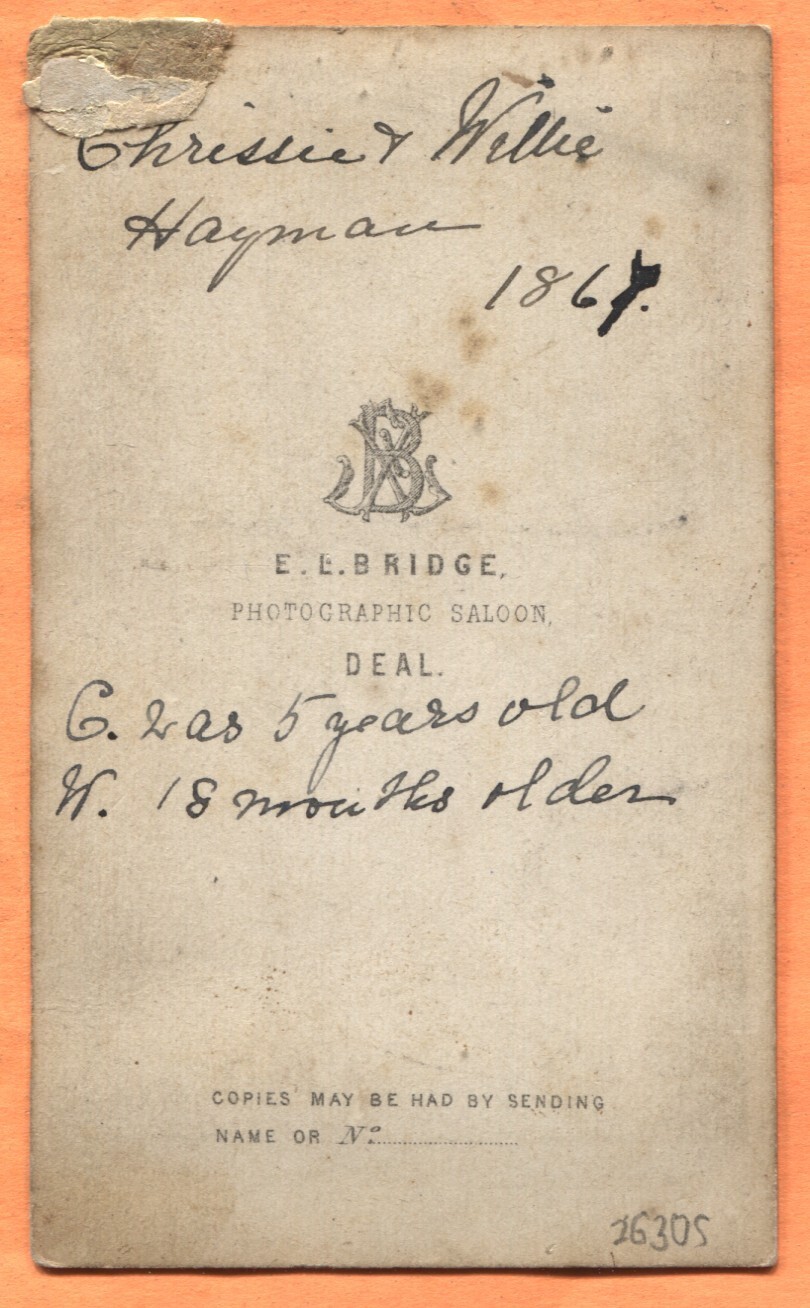 Chrissie & Willie
Hayman
1867.
E. L. BRIDGE,
PHOTOGRAPHIC SALOON,
DEAL.
C. was 5 years old
W. 18 months older
COPIES MAY BE HAD BY SENDING
NAME OR Nº
26305